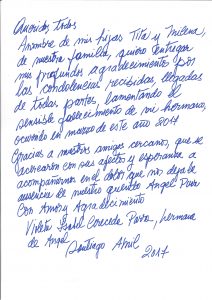 Queridos todos
A nombre de mis hijas Tita y Milena,
de nuestra familia, quiero entregar
mis profundos agradecimiento por
las condolencias recibidas llegadas
de todas partes, lamentando el
sensible fallecimiento de mi hermano,
ocurrido en marzo de este año 2017
Gracias a nuestros amigos cercano, que se
acercaron con sus afectos y esperanza a
acompañarnos en el dolor que nos deja la
ausencia de nuestro querido Angel Parra
Con Amor y Agradecimiento
Violeta Isabel Cereceda Parra, hermana
de Angel
Santiago Abril
2017